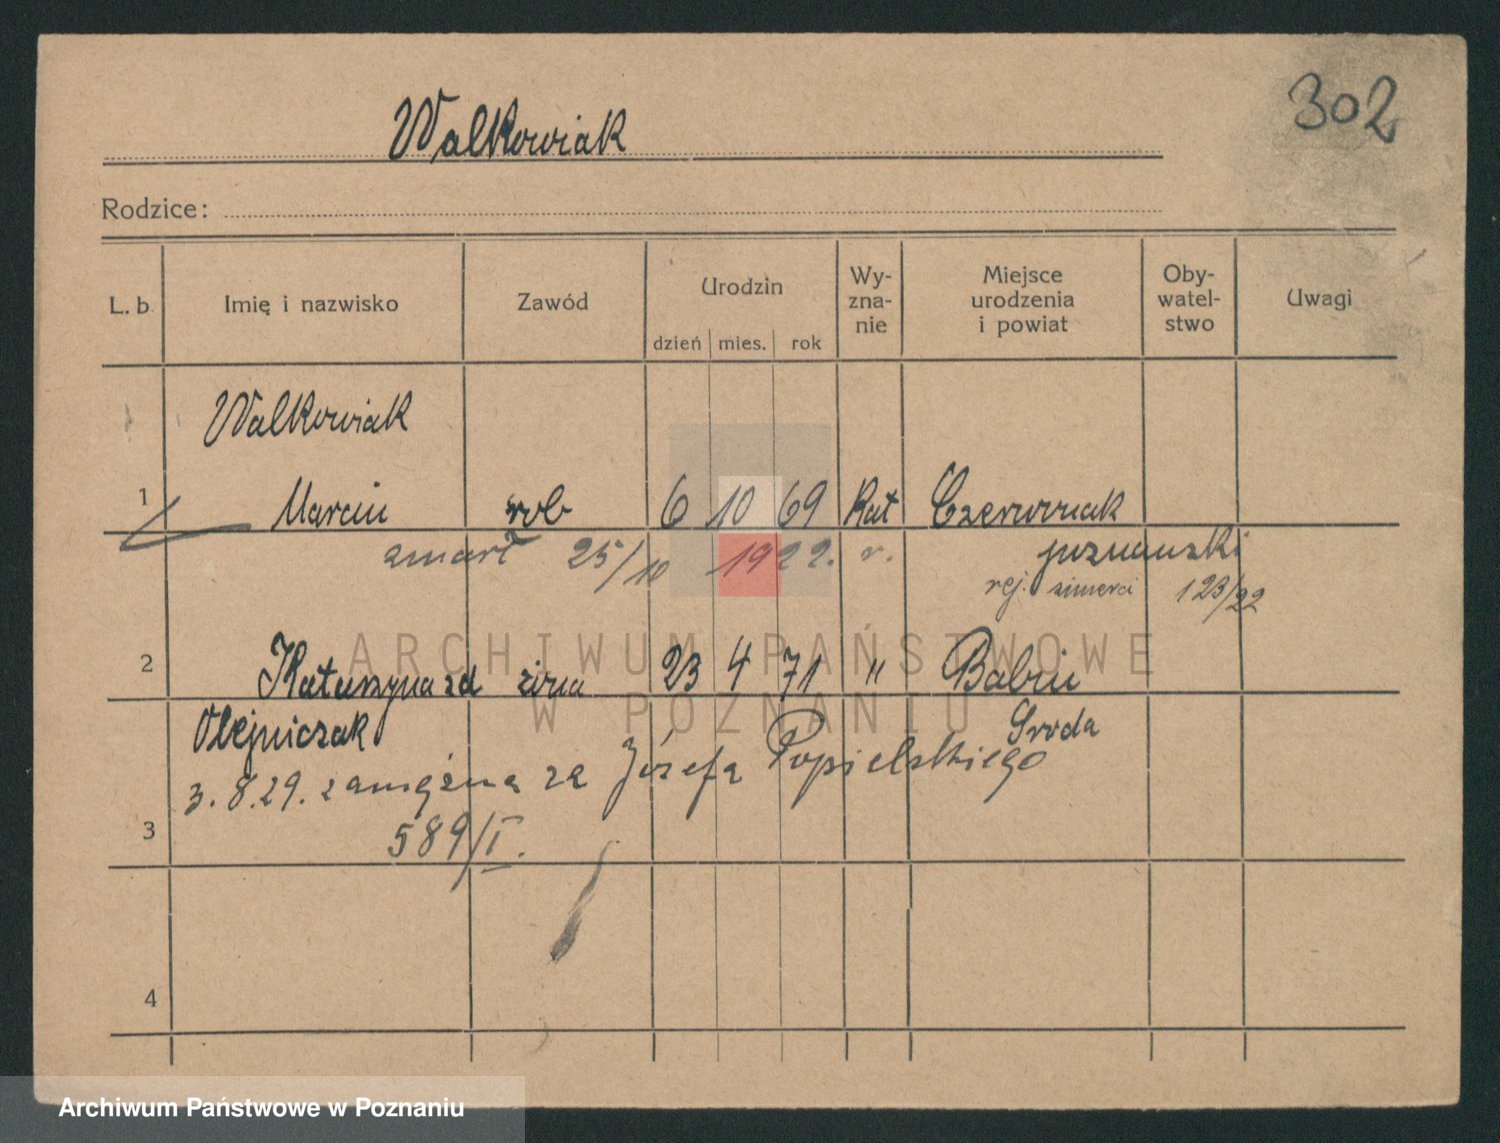 302
Walkowiak
Rodzice:
L. b. Imię i nazwisko Zawód Urodzin dzień mies. rok Wy-zna-nie Miejsce urodzenia i powiat Oby-watel-stwo Uwagi
Walkowiak
1 Marcin rob 6 10 69 Kat Czerwonak
zmarł 25/10 1922. r. poznański
rej. śmierci 123/22
2 Katarzyna zd żona 23 4 71 " Babin
Olejniczak Sroda
3.8.29. zamężna za Józefa Popielskiego
3 589/I.
4
ARCHIWUM PAŃSTWOWE
W POZNANIU
Archiwum Państwowe w Poznaniu